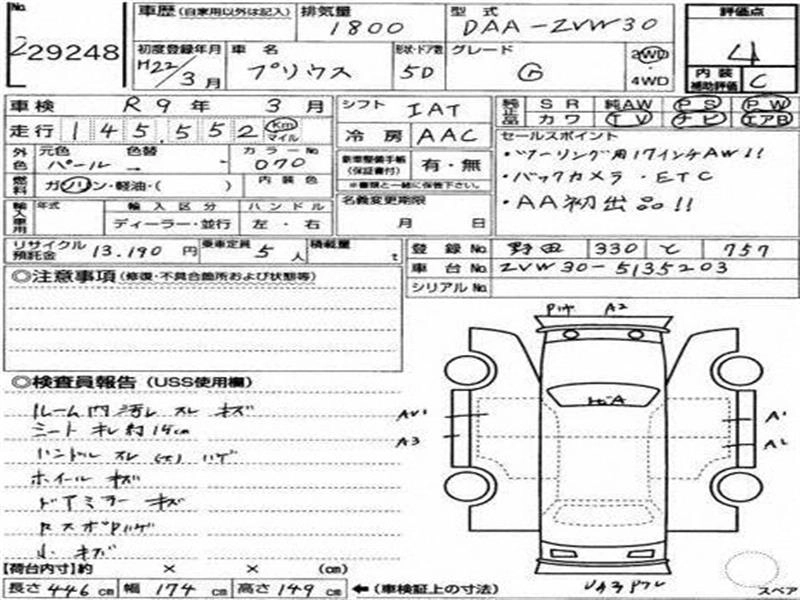 No. 229248
車歴(自家用以外は記入) 排気量 1800 型式 DAA-ZVW30 評価点 4
初度登録年月 H22/3月 車名 プリウス 形状・ドア数 5D グレード G 2WD・4WD 内装補助評価 C
車検 R9年 3月 シフト IAT 純正品 SR 純AW PS PW
走行 145,552 Km マイル 冷房 AAC カワ TV ナビ エアB
外色 元色 パール 色替 カラーNo 070 新車整備手帳(保証書付) 有・無 セールスポイント
・ツーリング用17インチAW!!
燃料 ガソリン・軽油・( ) 内装色 ※書類と一緒に保管下さい。
・バックカメラ・ETC
輸入車用 年式 輸入区分 ハンドル 名義変更期限
・AA初出品!!
ディーラー・並行 左・右 月 日
リサイクル預託金 13,190円 乗車定員 5人 積載量 t 登録No. 野田 330 と 757
車台No. ZVW30-5135203
◎注意事項(修復・不具合箇所および状態等) シリアルNo.
A2
◎検査員報告(USS使用欄)
ルーム内汚レ スレ キズ
シート キレ約14cm
ハンドル スレ(大) ハゲ
ホイール キズ
ドアミラー キズ
小キズ
AU1 A1
A3 A2
【荷台内寸】約 × × (cm)
長さ446cm 幅174cm 高さ149cm ←(車検証上の寸法) スペア